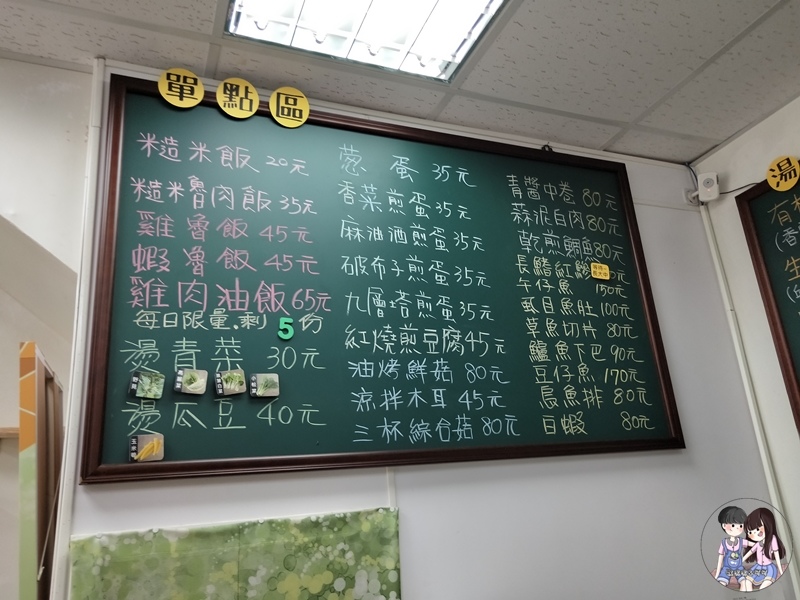 單點區
糙米飯 20元
糙米魯肉飯 35元
雞魯飯 45元
蝦魯飯 45元
雞肉油飯 65元
每日限量.剩 5 份
燙青菜 30元
燙瓜豆 40元
蔥蛋 35元
香菜煎蛋 35元
麻油酒煎蛋 35元
破布子煎蛋 35元
九層塔煎蛋 35元
紅燒煎豆腐 45元
油烤鮮菇 80元
涼拌木耳 45元
三杯綜合菇 80元
青醬中卷 80元
蒜泥白肉 80元
乾煎鯛魚 80元
長鰭紅 元
午仔魚 150元
虱目魚肚 100元
草魚切片 80元
鱸魚下巴 90元
豆仔魚 170元
烏魚排 80元
白蝦 80元
湯
有
生